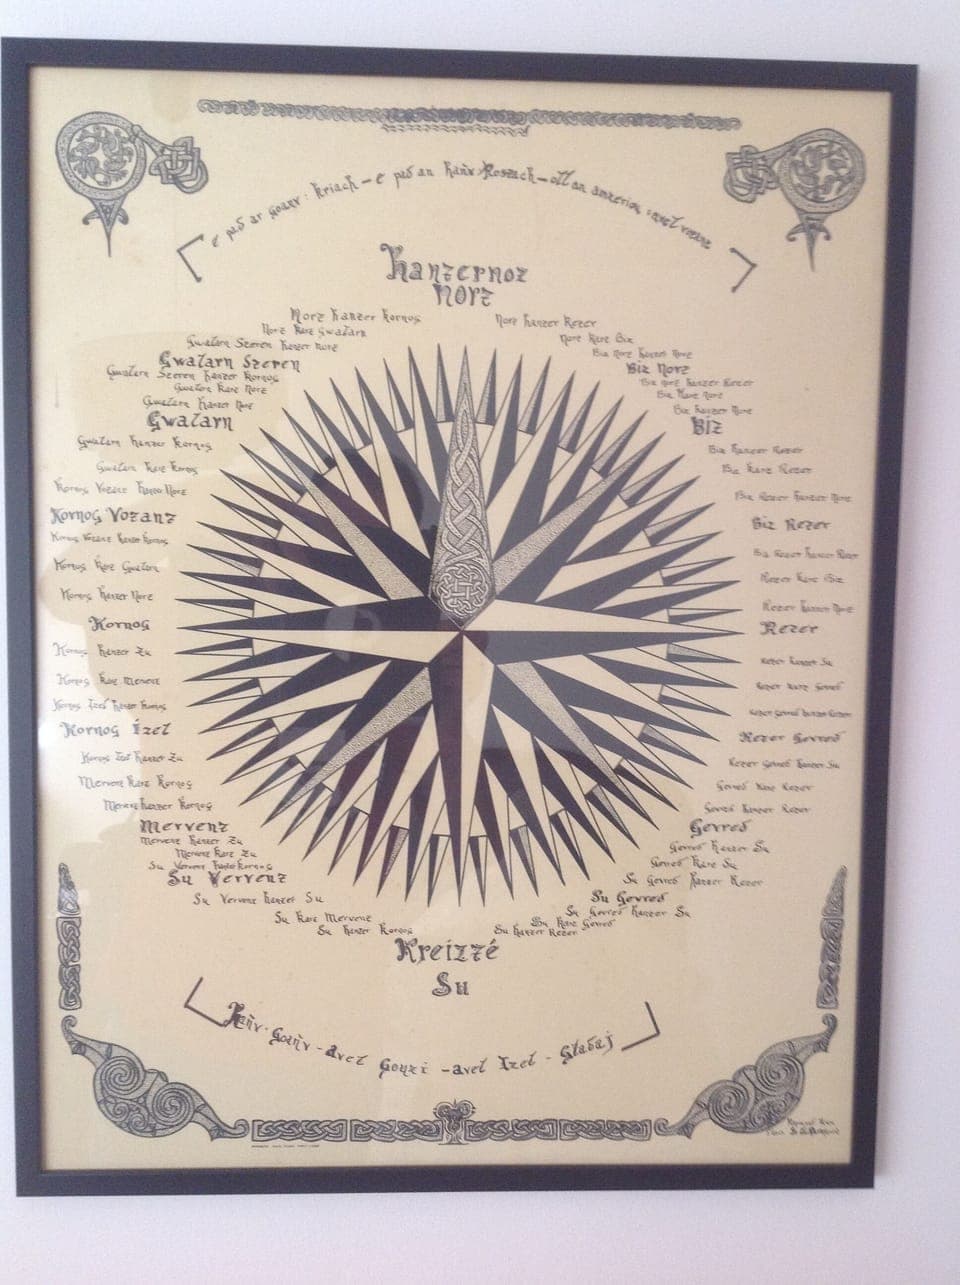 e pad ar goañv : Kriach — e pad an hañv Roszach — oll an amzerioù : avel
Hanternoz
Norz
Norz Kanzer Kornog
Norz Karz Gwalarn
Gwalarn Szeren Kanzer Norz
Gwalarn Szeren
Gwalarn Szeren Kanzer Kornog
Gwalarn Karz Norz
Gwalarn Kanzer Norz
Gwalarn
Gwalarn Kanzer Kornog
Gwalarn Karz Kornog
Kornog Vozanz Kanzer Norz
Kornog Vozanz
Kornog Vozanz Kanzer Kornog
Kornog Karz Gwalarn
Kornog Kanzer Norz
Kornog
Kornog Kanzer Zu
Kornog Karz Mervenz
Kornog Izel Kanzer Kornog
Kornog Izel
Kornog Izel Kanzer Zu
Mervenz Karz Kornog
Mervenz Kanzer Kornog
Mervenz
Mervenz Kanzer Zu
Mervenz Karz Zu
Su Vervenz Kanzer Kornog
Su Vervenz
Su Vervenz Kanzer Su
Su Karz Mervenz
Su Kanzer Kornog
Norz Kanzer Rezer
Norz Karz Biz
Biz Norz Kanzer Norz
Biz Norz
Biz Norz Kanzer Rezer
Biz Karz Norz
Biz Kanzer Norz
Biz
Biz Kanzer Rezer
Biz Karz Rezer
Biz Rezer Kanzer Norz
Biz Rezer
Biz Rezer Kanzer Rezer
Rezer Karz Biz
Rezer Kanzer Norz
Rezer
Rezer Kanzer Su
Rezer Karz Gevred
Rezer Gevred Kanzer Rezer
Rezer Gevred
Rezer Gevred Kanzer Su
Gevred Karz Rezer
Gevred Kanzer Rezer
Gevred
Gevred Kanzer Su
Gevred Karz Su
Su Gevred Kanzer Rezer
Su Gevred
Su Gevred Kanzer Su
Su Karz Gevred
Su Kanzer Rezer
Kreizzé
Su
Hañv - Goañv - avel Gouzi - avel Izel - Glabaj